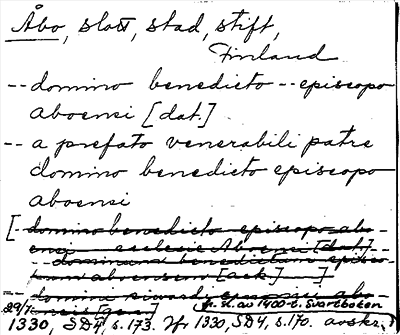 Åbo, slott, stad, stift,
Finland
-- domino benedicto -- episcopo
aboensi [dat.]
-- a prefato venerabili patre
domino benedicto episcopo
aboensi
[-- domino benedicto episcopo abo-
ensi ecclesie Aboensi [dat.] --
-- dominum benedictum episco-
pum aboensem [ack.] ]
-- domino episcopo abo-
29/7 [gen.] fr. sl. av 1400-t. Svartboken
1330, SD4, s. 173. Jfr 1330, SD4, s. 170. avskr.)